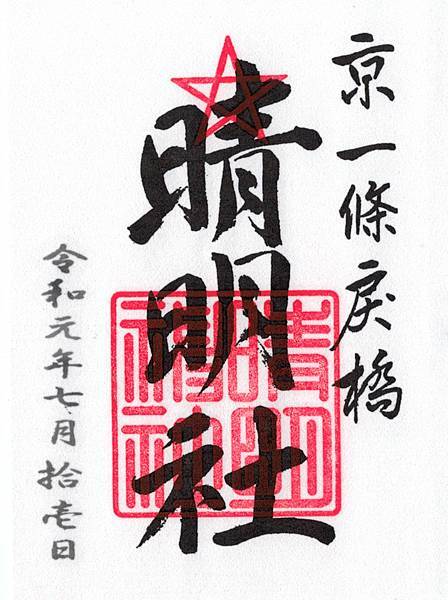 京一條戻橋
晴明社
晴明神社
令和元年七月拾壱日